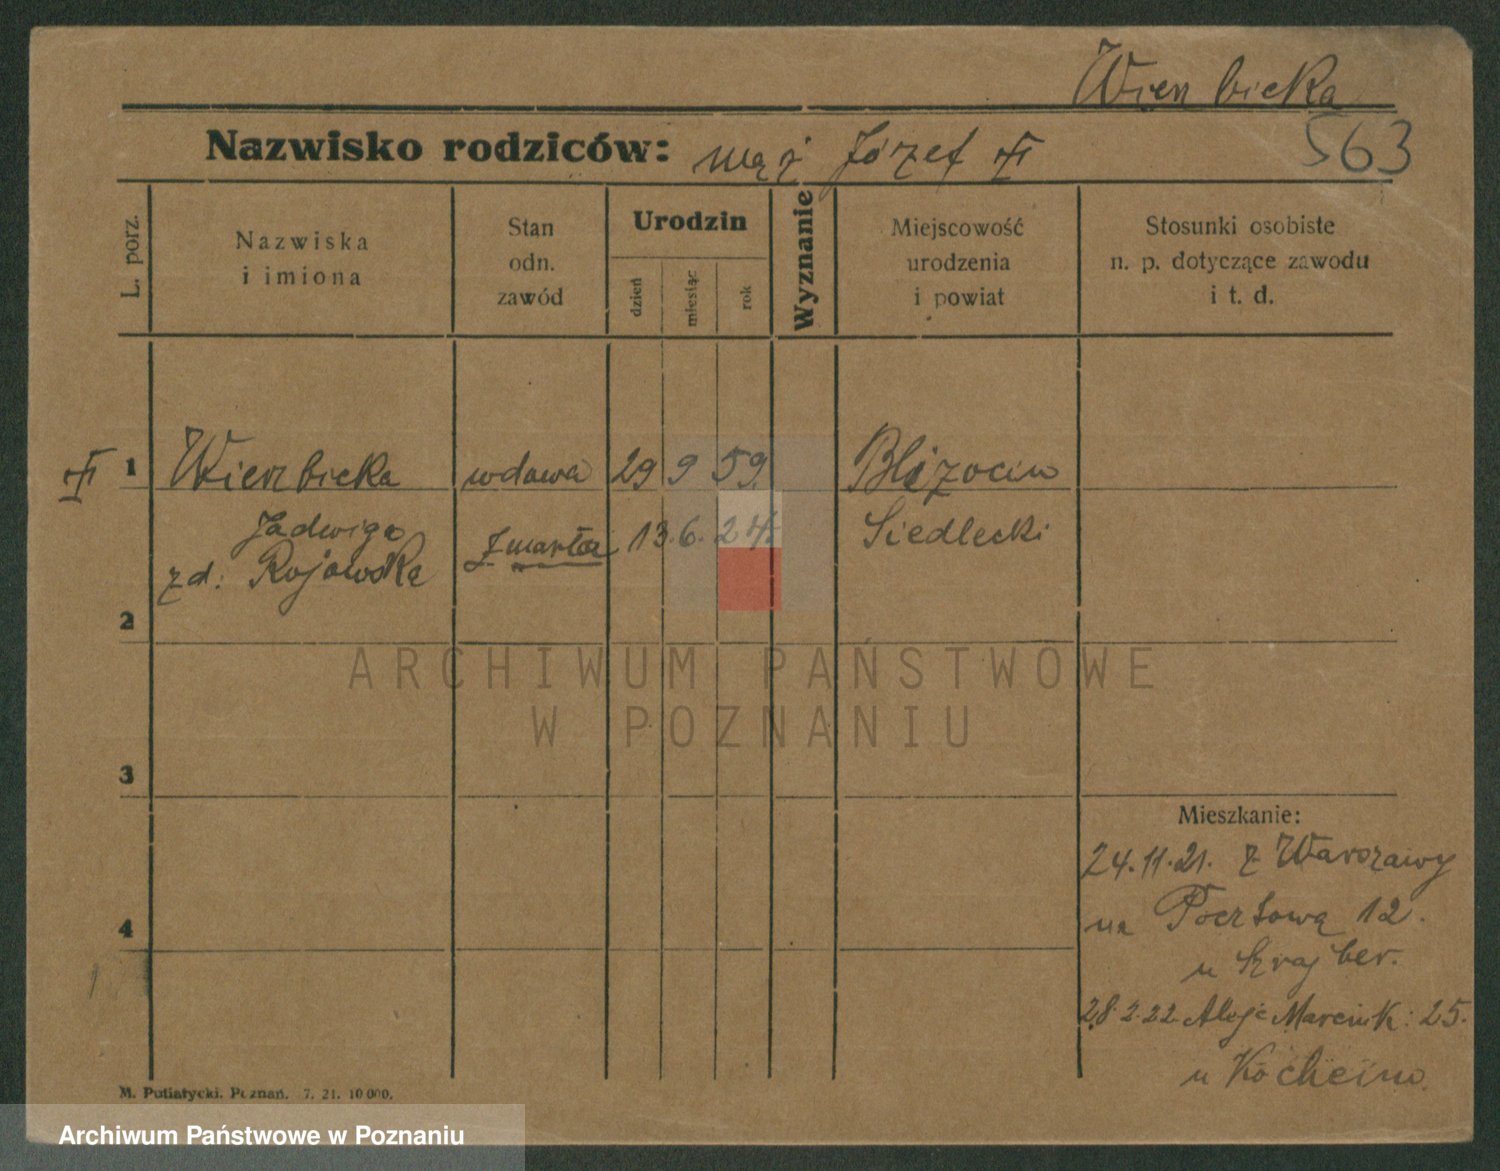 Wierzbicka
563
Nazwisko rodziców: mąż Józef
L. porz.
Nazwiska i imiona
Stan odn. zawód
Urodzin
dzień miesiąc rok
Wyznanie
Miejscowość urodzenia i powiat
Stosunki osobiste n. p. dotyczące zawodu i t. d.
1 Wierzbicka wdowa 29 9 59. Blizocin
Jadwiga zmarła 13. 6. 24. Siedlecki
zd: Rojowska
2
ARCHIWUM PAŃSTWOWE
W POZNANIU
3
Mieszkanie:
24.11.21. z Warszawy
4
na Pocztową 12.
u
28.2.22. Aleje Marcink: 25.
u
M. Putiatycki. Poznań. 7. 21. 10 000.
Archiwum Państwowe w Poznaniu